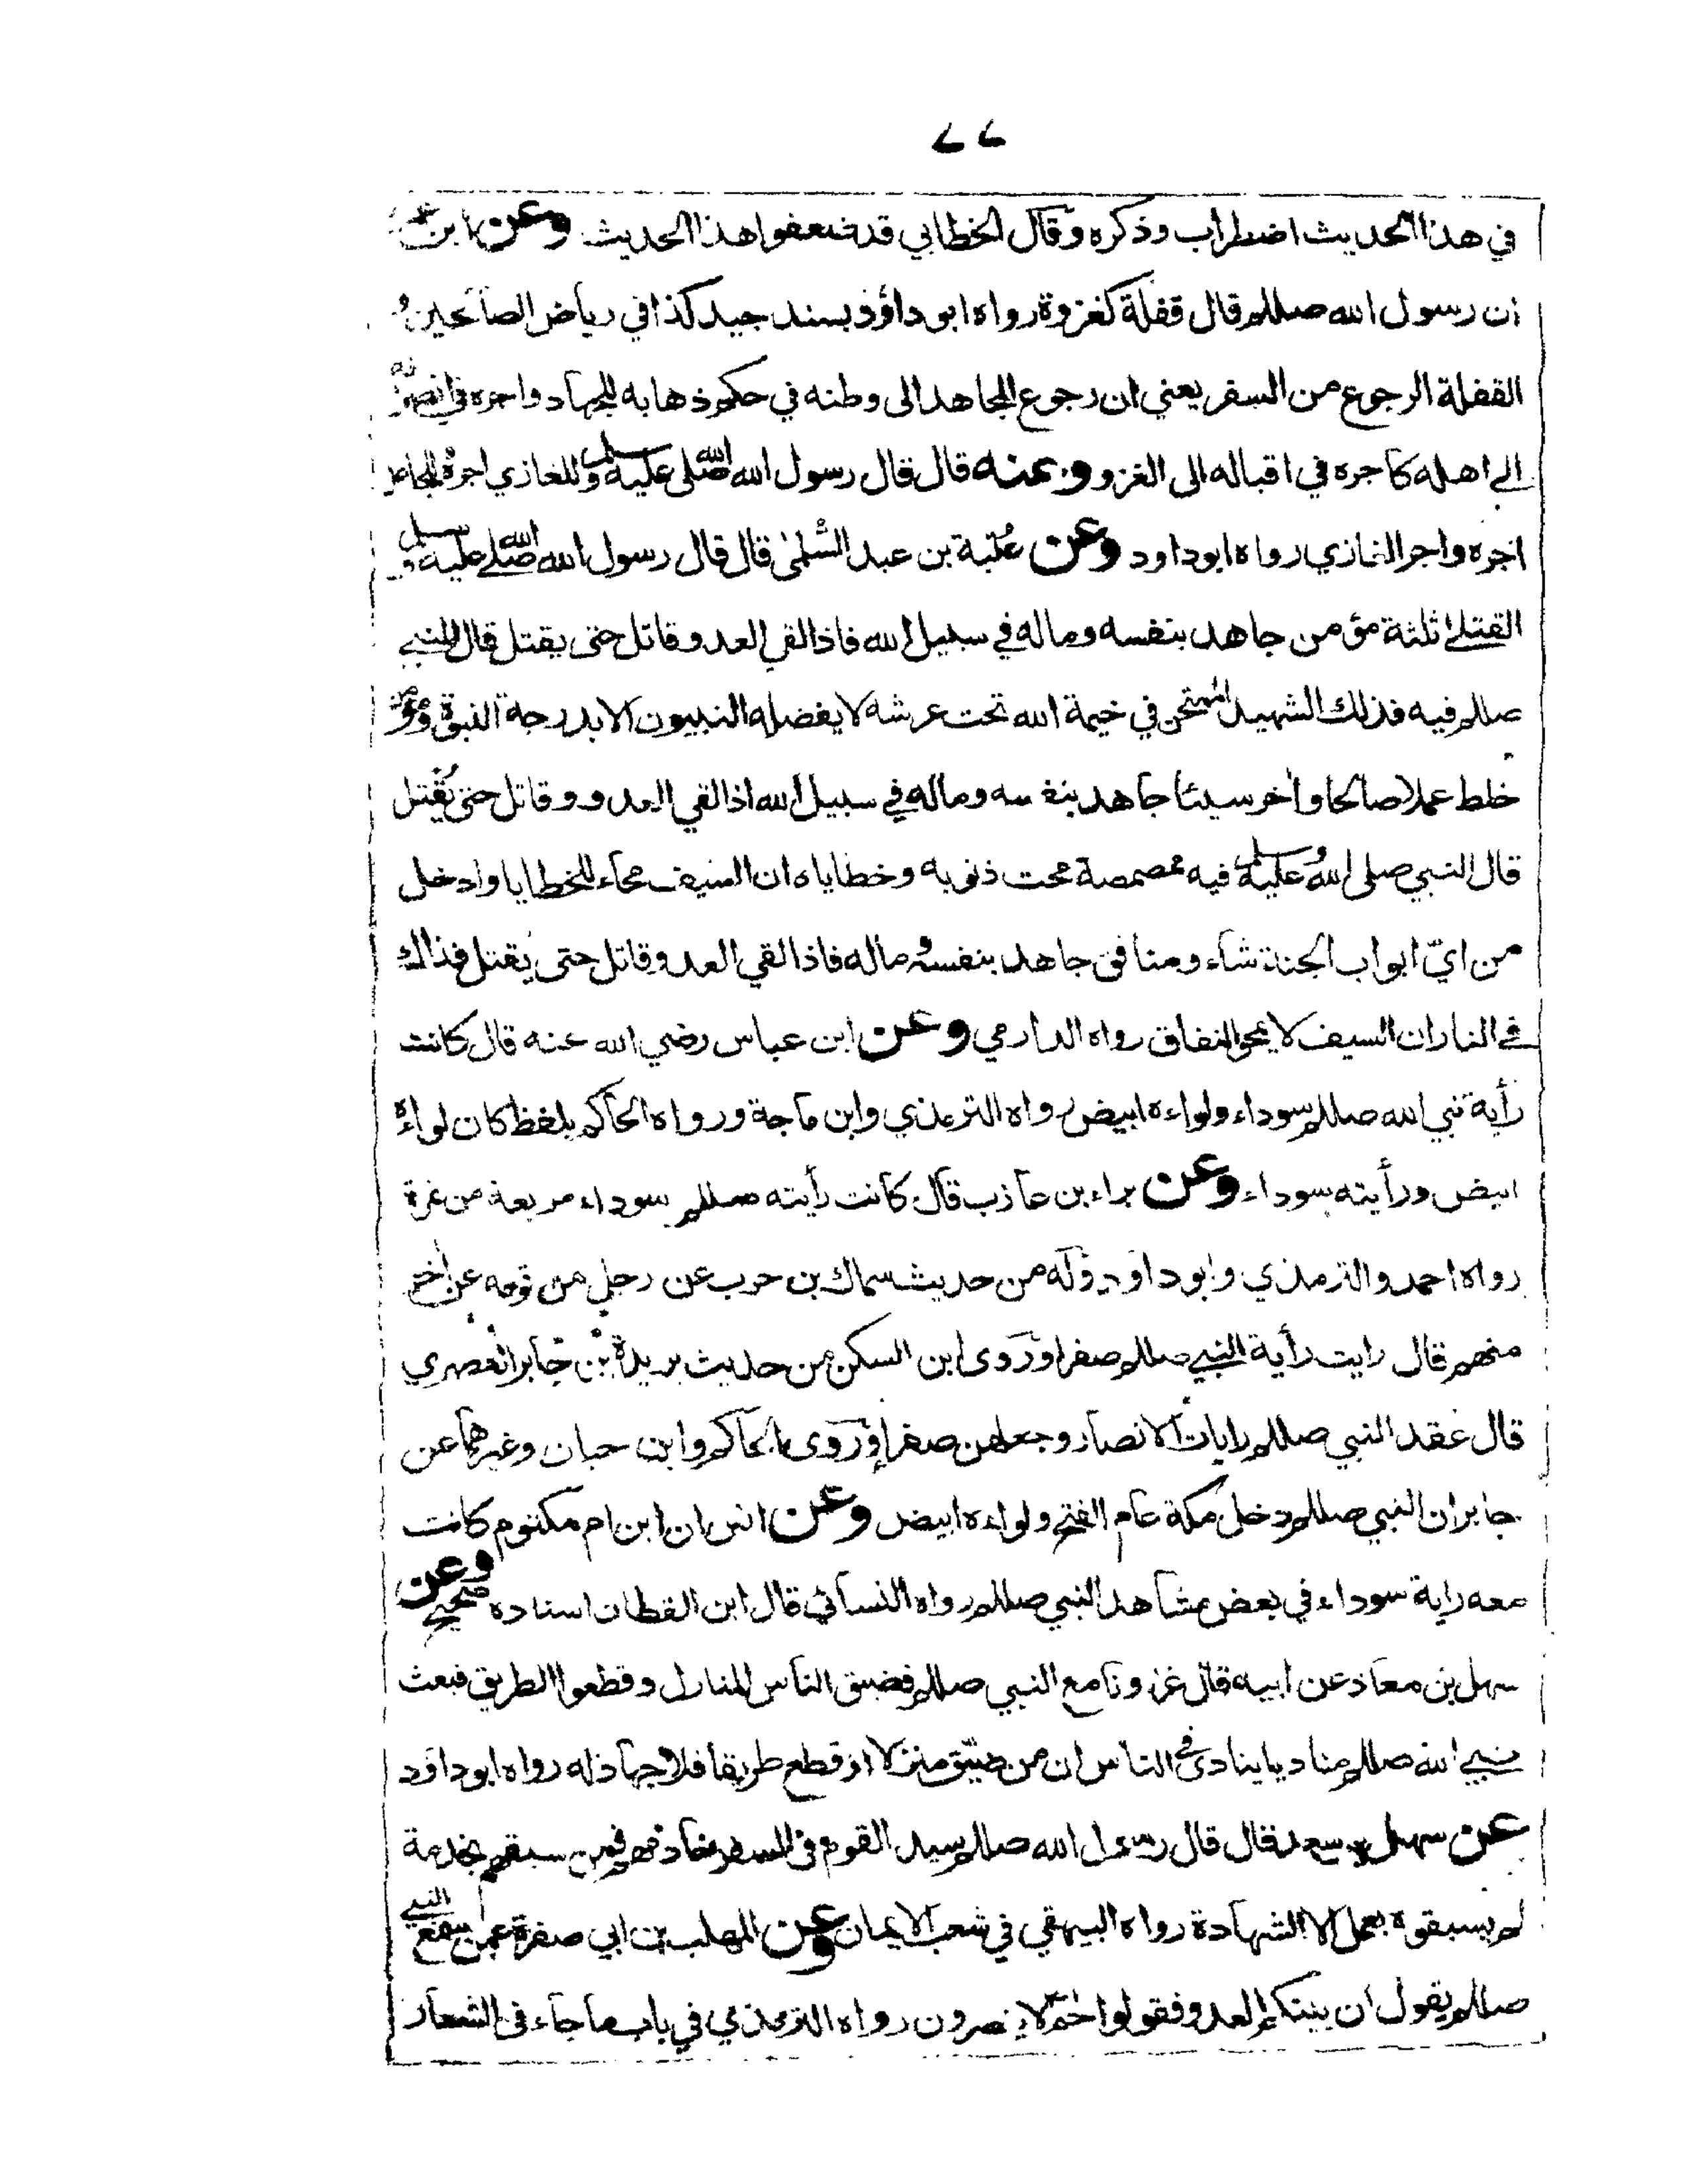 ٢٢
في هذا الحديث اضطراب وذكره وقال الخطابي قد ضعفوا هذا الحديث وعن ابن
ان رسول الله صللم قال قفلة كغزوة رواه ابو داؤد بسند جيد كذا في رياض الصالحين و
القفلة الرجوع من السفر يعني ان رجوع المجاهد الى وطنه في حكم ذهابه للجهاد واجره في انصرافه
الى اهله كاجره في اقباله الى الغزو وعنه قال قال رسول الله صلى الله عليه وسلم للغازي اجره وللجاعل
اجره واجر الغازي رواه ابو داود وعن عُتبة بن عبد السُّلمي قال قال رسول الله صلى الله عليه وسلم
القتلى ثلثة مؤمن جاهد بنفسه وماله في سبيل الله فاذا لقي العدو قاتل حتى يقتل قال النبي
صللم فيه فذلك الشهيد الممتحن في خيمة الله تحت عرشه لا يفضله النبيون الا بدرجة النبوة ومؤمن
خلط عملا صالحا واخر سيئا جاهد بنفسه وماله في سبيل الله اذا لقي العدو وقاتل حتى يُقتل
قال النبي صلى الله عليه وسلم فيه ممصمصة محت ذنوبه وخطاياه ان السيف محاء للخطايا وادخل
من ايّ ابواب الجنة شاء ومنافق جاهد بنفسه وماله فاذا لقي العدو قاتل حتى يُقتل فذاك
في النار ان السيف لا يمحو النفاق رواه الدارمي وعن ابن عباس رضي الله عنه قال كانت
رأية نبي الله صللم سوداء ولواءه ابيض رواه الترمذي وابن ماجة ورواه الحاكم بلفظ كان لواءه
ابيض ورأيته سوداء وعن براء بن عازب قال كانت رأيته صللم سوداء مربعة من نمرة
رواه احمد والترمذي وابو داود وله من حديث سماك بن حرب عن رجل من قومه عن اخر
منهم قال رايت رأية النبي صللم صفرا وروى ابن السكن من حديث بريدة بن جابر العصري
قال عقد النبي صللم رايات الانصار وجعلهن صفرا وروى الحاكم وابن حبان وغيرهما عن
جابر ان النبي صللم دخل مكة عام الفتح ولواءه ابيض وعن انس ان ابن ام مكتوم كانت
معه راية سوداء في بعض مشاهد النبي صللم رواه النسائي قال ابن القطان اسناده صحيح وعن
سهل بن معاذ عن ابيه قال غزونا مع النبي صللم فضيق الناس المنازل وقطعوا الطريق فبعث
نبي الله صللم مناديا ينادى في الناس ان من ضيّق منزلا او قطع طريقا فلا جهاد له رواه ابو داود
عن سهل بن سعد قال قال رسول الله صللم سيد القوم في السفر خادمهم فمن سبقهم بخدمة
لم يسبقوه بعمل الا الشهادة رواه البيهقي في شعب الايمان وعن المهلب بن ابي صفرة عمن سمع النبي
صللم يقول ان بيتكم العدو فقولوا حٰم لا ينصرون رواه الترمذي في باب ما جاء في الشعار